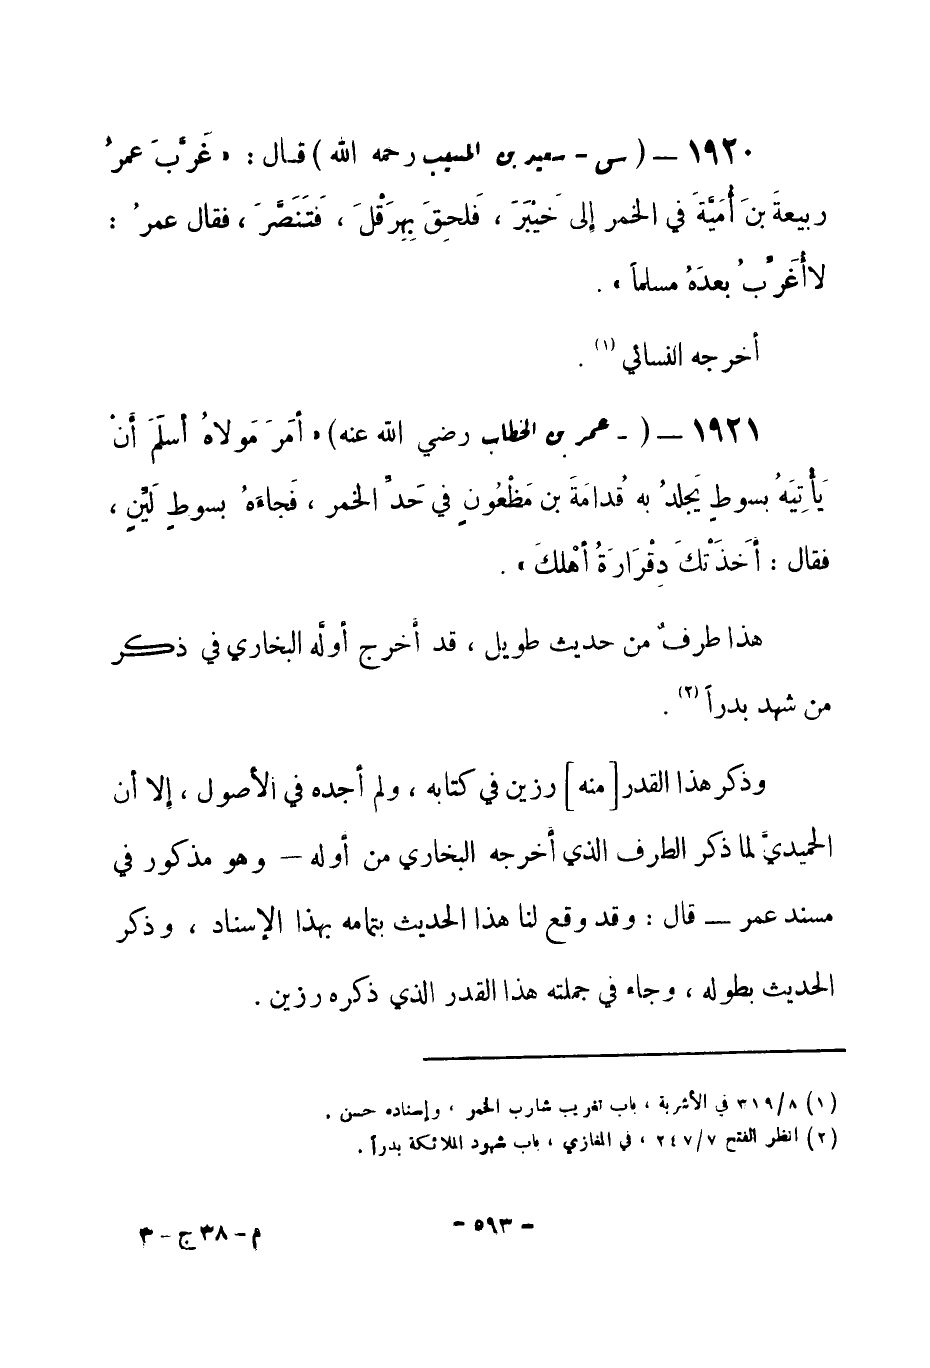 ١٩٢٠ – ( س - سعيد بن المسيب رحمه الله ) قال : « غَرَّبَ عمرُ
ربيعةَ بنَ أُمَيَّةَ في الخمر إلى خَيْبَرَ ، فَلحِقَ بِهِرَقْلَ ، فَتَنَصَّرَ ، فقال عمرُ :
لا أُغَرِّبُ بعدَهُ مسلماً » .
أخرجه النسائي (١) .
١٩٢١ – ( - عمر بن الخطاب رضي الله عنه ) « أمَرَ مَولاهُ أسلَمَ أَنْ
يَأْتِيَهُ بسوطٍ يَجلدُ به قُدامَةَ بن مَظْعُونٍ في حَدِّ الخمر ، فَجاءَهُ بسوطٍ لَيِّنٍ ،
فقال : أَخَذَتْكَ دِقْرَارَةُ أَهْلكَ » .
هذا طرفٌ من حديث طويل ، قد أَخرج أوَّله البخاري في ذكر
من شهد بدراً (٢) .
وذكر هذا القدر [منه] رزين في كتابه ، ولم أجده في الأصول ، إلا أن
الحميديَّ لما ذكر الطرف الذي أخرجه البخاري من أوله – وهو مذكور في
مسند عمر – قال : وقد وقع لنا هذا الحديث بتمامه بهذا الإسناد ، وذكر
الحديث بطوله ، وجاء في جملته هذا القدر الذي ذكره رزين .
(١) ٣١٩/٨ في الأشربة ، باب تغريب شارب الخمر ، وإسناده حسن .
(٢) انظر الفتح ٢٤٧/٧ ، في المغازي ، باب شهود الملائكة بدراً .
- ٥٩٣ -
م - ٣٨ ج - ٣